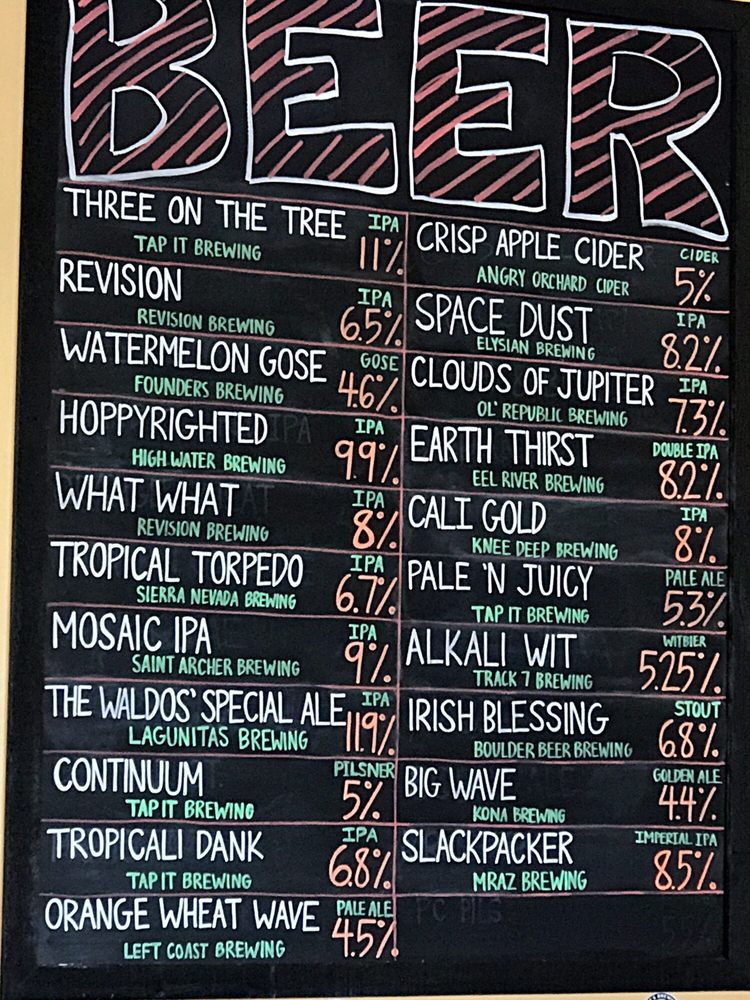 BEER
THREE ON THE TREE IPA
TAP IT BREWING 11%
REVISION IPA
REVISION BREWING 6.5%
WATERMELON GOSE GOSE
FOUNDERS BREWING 4.6%
HOPPYRIGHTED IPA
HIGH WATER BREWING 9.9%
WHAT WHAT IPA
REVISION BREWING 8%
TROPICAL TORPEDO IPA
SIERRA NEVADA BREWING 6.7%
MOSAIC IPA IPA
SAINT ARCHER BREWING 9%
THE WALDOS' SPECIAL ALE IPA
LAGUNITAS BREWING 11.9%
CONTINUUM PILSNER
TAP IT BREWING 5%
TROPICALI DANK IPA
TAP IT BREWING 6.8%
ORANGE WHEAT WAVE PALE ALE
LEFT COAST BREWING 4.5%
CRISP APPLE CIDER CIDER
ANGRY ORCHARD CIDER 5%
SPACE DUST IPA
ELYSIAN BREWING 8.2%
CLOUDS OF JUPITER IPA
OL' REPUBLIC BREWING 7.3%
EARTH THIRST DOUBLE IPA
EEL RIVER BREWING 8.2%
CALI GOLD IPA
KNEE DEEP BREWING 8%
PALE 'N JUICY PALE ALE
TAP IT BREWING 5.3%
ALKALI WIT WITBIER
TRACK 7 BREWING 5.25%
IRISH BLESSING STOUT
BOULDER BEER BREWING 6.8%
BIG WAVE GOLDEN ALE
KONA BREWING 4.4%
SLACKPACKER IMPERIAL IPA
MRAZ BREWING 8.5%
PC PILS